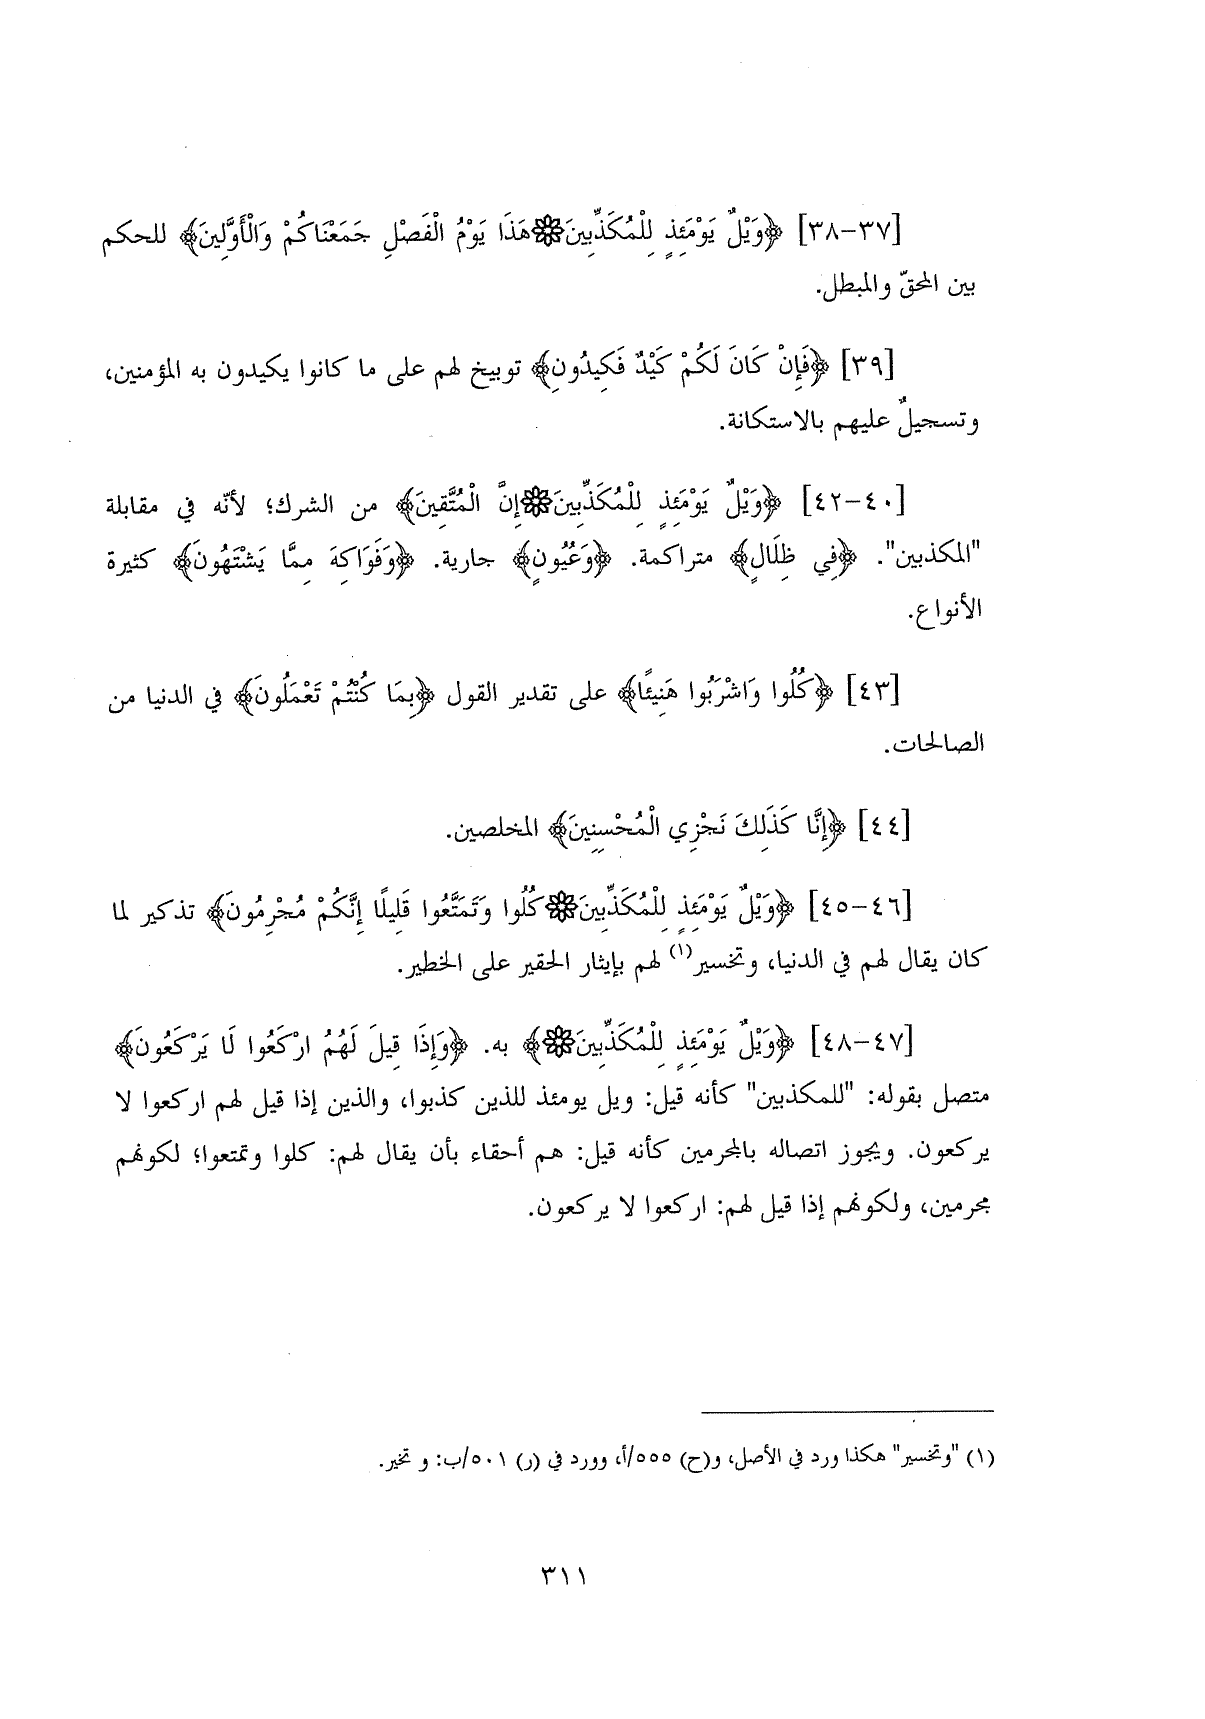 [٣٧-٣٨] ﴿وَيْلٌ يَوْمَئِذٍ لِلْمُكَذِّبِينَ۞هَذَا يَوْمُ الْفَصْلِ جَمَعْنَاكُمْ وَالْأَوَّلِينَ﴾ للحكم
بين المحقّ والمبطل.
[٣٩] ﴿فَإِنْ كَانَ لَكُمْ كَيْدٌ فَكِيدُونِ﴾ توبيخ لهم على ما كانوا يكيدون به المؤمنين،
وتسجيلٌ عليهم بالاستكانة.
[٤٠-٤٢] ﴿وَيْلٌ يَوْمَئِذٍ لِلْمُكَذِّبِينَ۞إِنَّ الْمُتَّقِينَ﴾ من الشرك؛ لأنّه في مقابلة
"المكذبين". ﴿فِي ظِلَالٍ﴾ متراكمة. ﴿وَعُيُونٍ﴾ جارية. ﴿وَفَوَاكِهَ مِمَّا يَشْتَهُونَ﴾ كثيرة
الأنواع.
[٤٣] ﴿كُلُوا وَاشْرَبُوا هَنِيئًا﴾ على تقدير القول ﴿بِمَا كُنْتُمْ تَعْمَلُونَ﴾ في الدنيا من
الصالحات.
[٤٤] ﴿إِنَّا كَذَلِكَ نَجْزِي الْمُحْسِنِينَ﴾ المخلصين.
[٤٥-٤٦] ﴿وَيْلٌ يَوْمَئِذٍ لِلْمُكَذِّبِينَ۞كُلُوا وَتَمَتَّعُوا قَلِيلًا إِنَّكُمْ مُجْرِمُونَ﴾ تذكير لما
كان يقال لهم في الدنيا، وتخسير(١) لهم بإيثار الحقير على الخطير.
[٤٧-٤٨] ﴿وَيْلٌ يَوْمَئِذٍ لِلْمُكَذِّبِينَ۞﴾ به. ﴿وَإِذَا قِيلَ لَهُمُ ارْكَعُوا لَا يَرْكَعُونَ﴾
متصل بقوله: "للمكذبين" كأنه قيل: ويل يومئذ للذين كذبوا، والذين إذا قيل لهم اركعوا لا
يركعون. ويجوز اتصاله بالمجرمين كأنه قيل: هم أحقاء بأن يقال لهم: كلوا وتمتعوا؛ لكونهم
مجرمين، ولكونهم إذا قيل لهم: اركعوا لا يركعون.
(١) "وتخسير" هكذا ورد في الأصل، و(ح) ٥٥٥/أ، وورد في (ر) ٥٠١/ب: و تخير.
٣١١